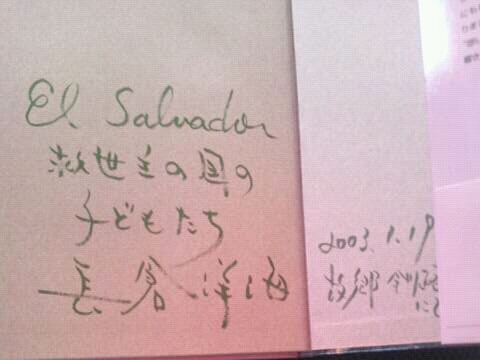 El Salvador
救世主の国の
子どもたち
長倉洋海
2003.1.19
故郷釧路
にて